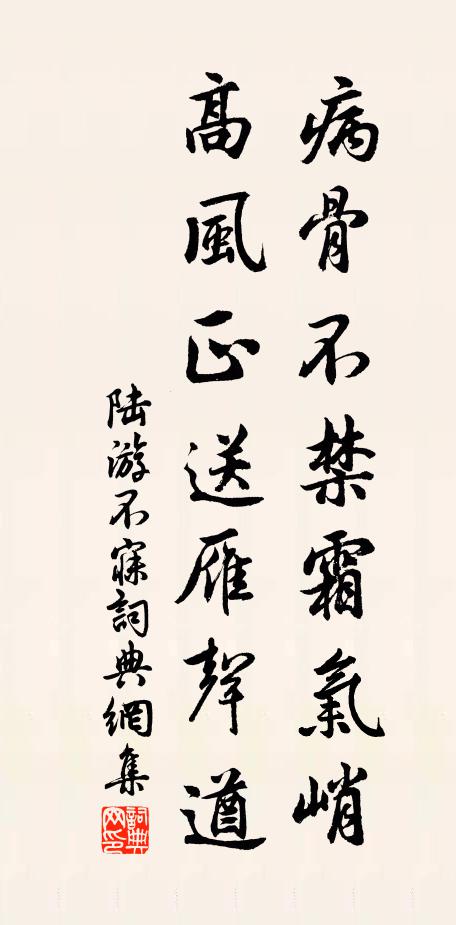 病骨不禁霜氣峭
高風正送雁聲遒
陸游不寐詞典網集
詞典網印